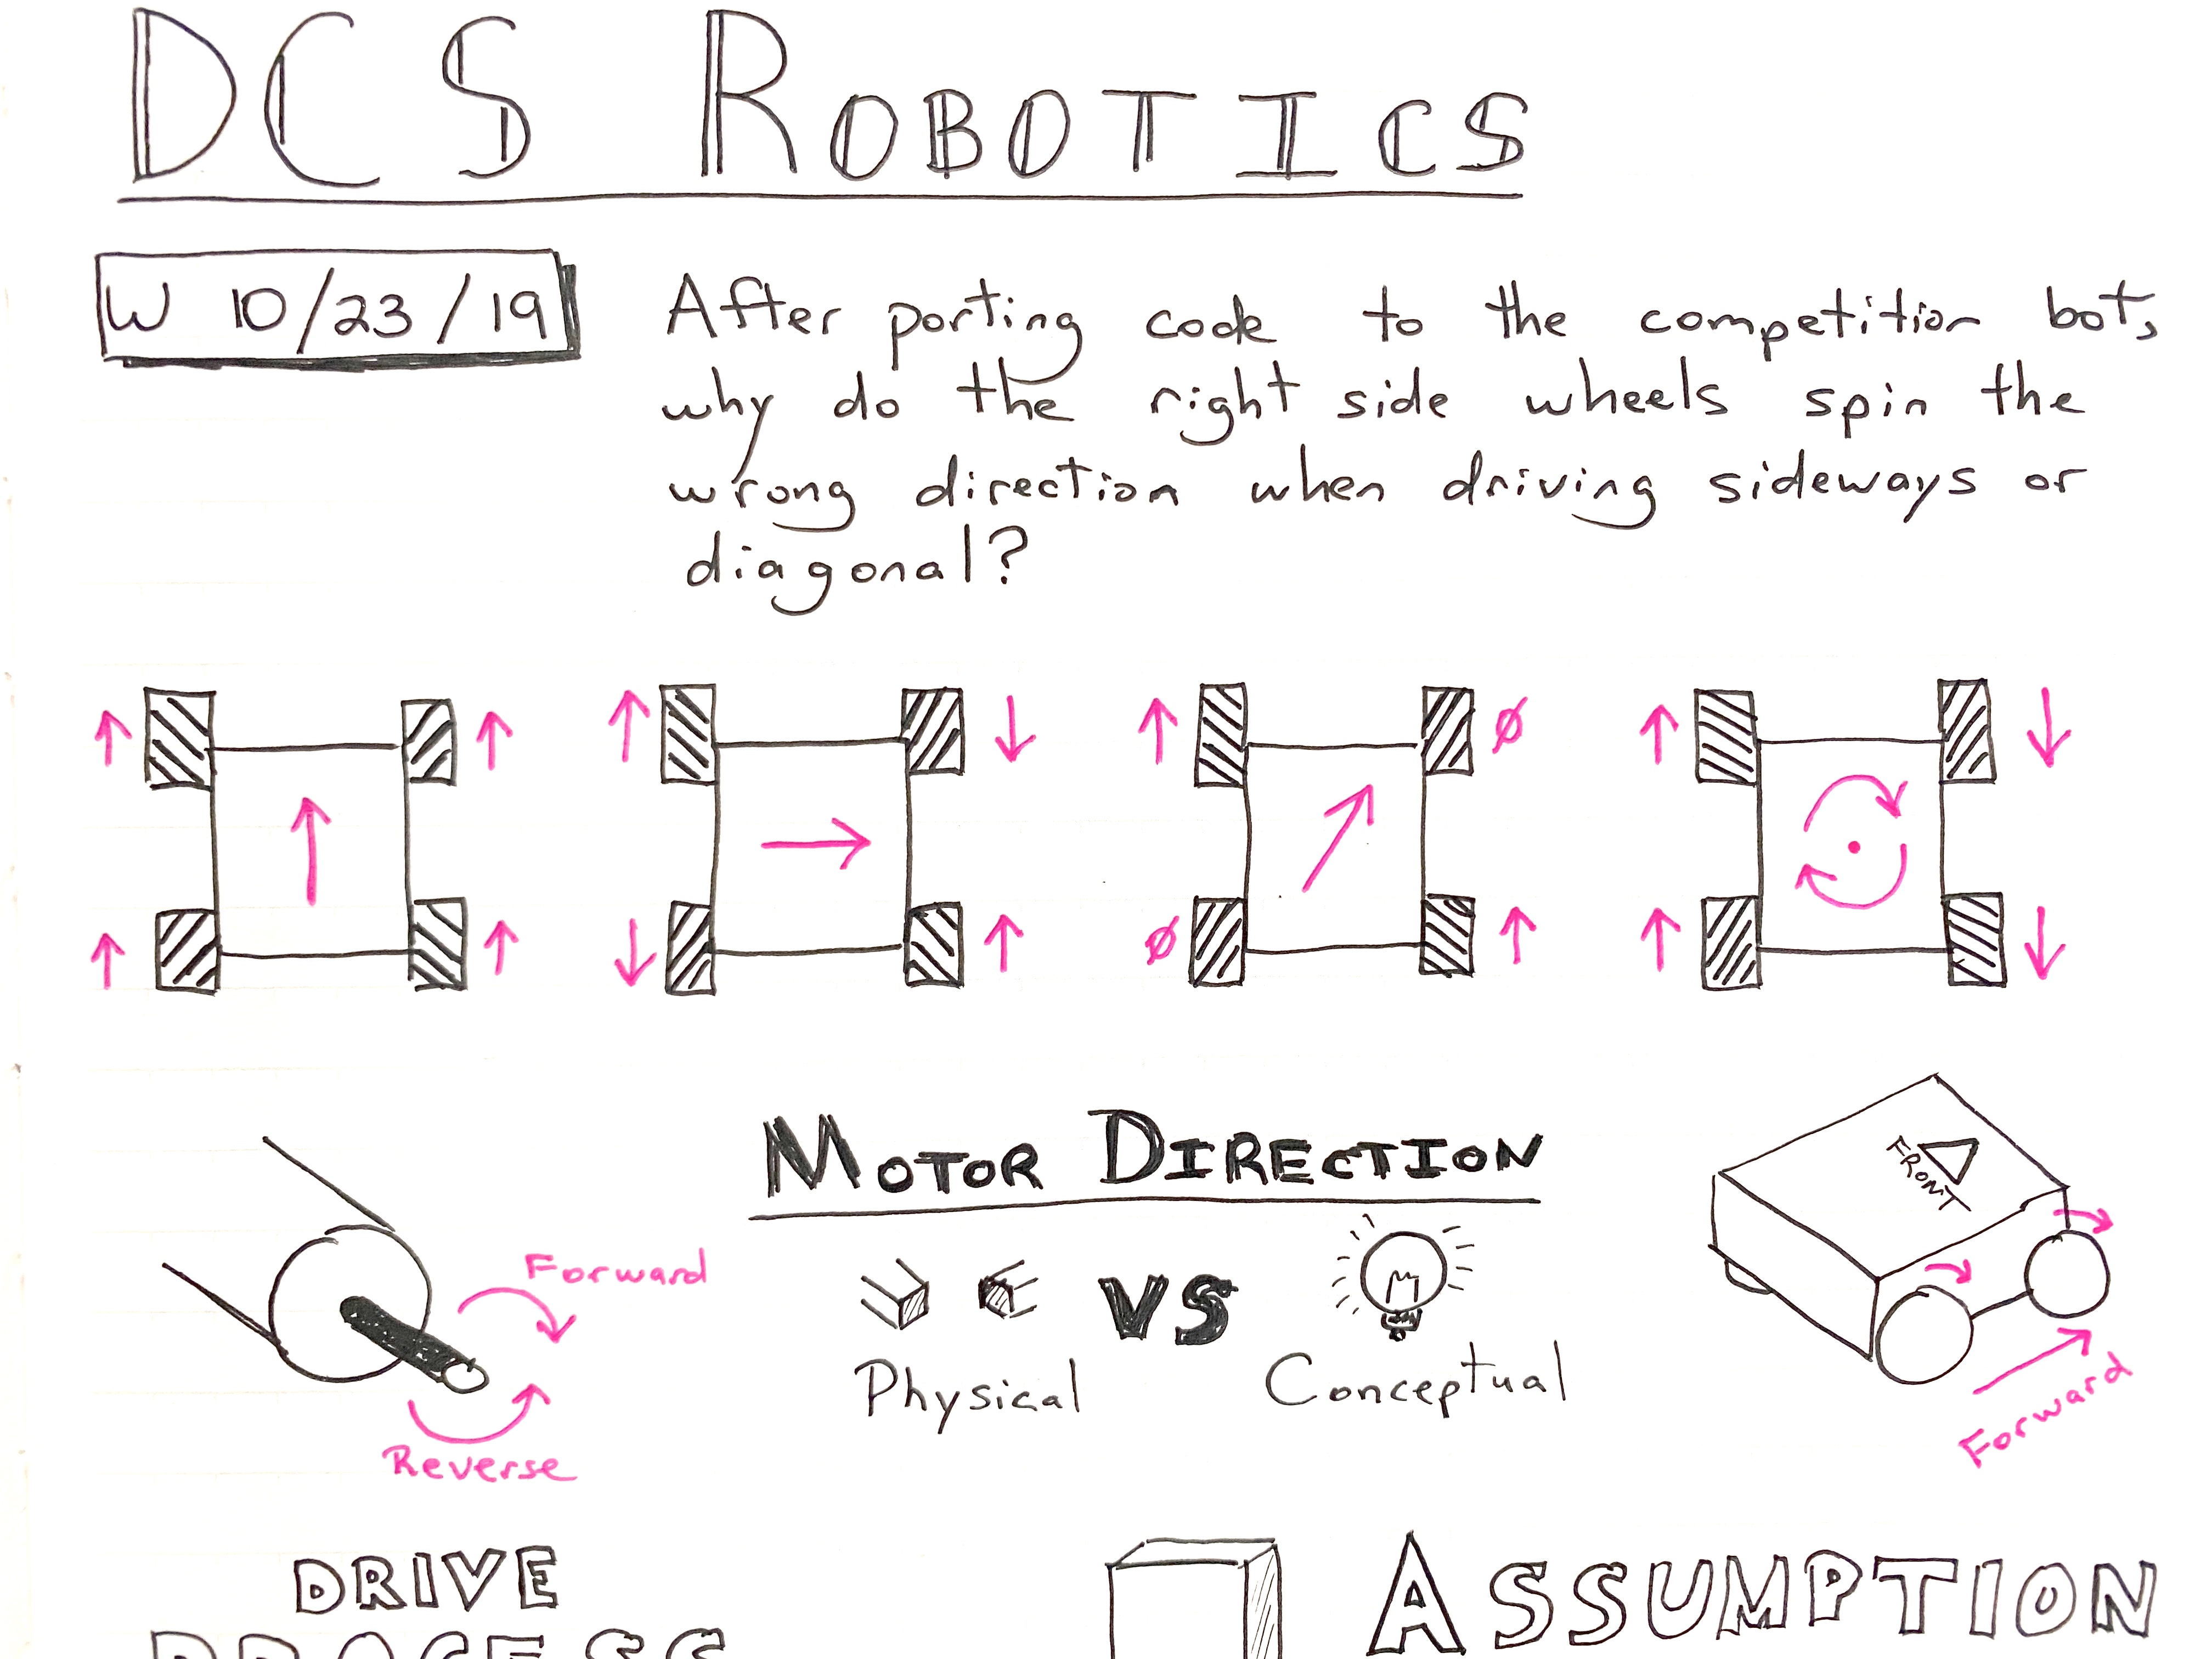 DCS ROBOTICS
W 10/23/19
After porting code to the competition bot,
why do the right side wheels spin the
wrong direction when driving sideways or
diagonal?
Ø
Ø
MOTOR DIRECTION
FRONT
Forward
Reverse
VS
Physical
Conceptual
Forward
DRIVE
PROCESS
ASSUMPTION